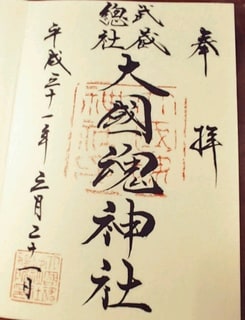 奉拝
武蔵
總社
大國魂神社
平成三十一年三月二十一日